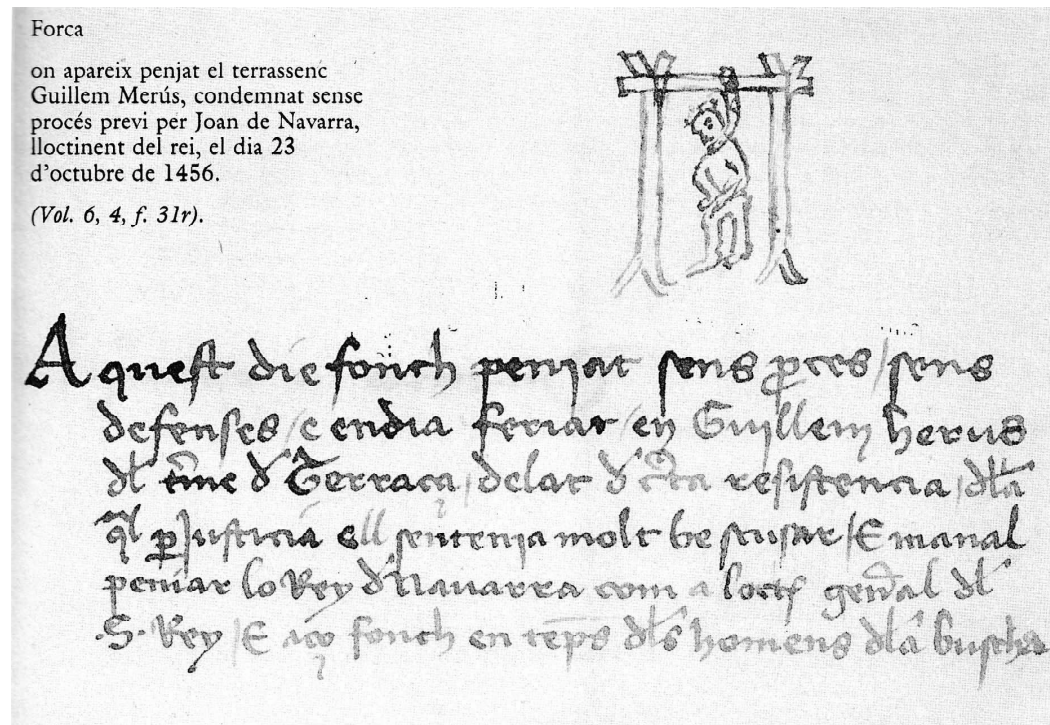 Forca
on apareix penjat el terrassenc
Guillem Merús, condemnat sense
procés previ per Joan de Navarra,
lloctinent del rei, el dia 23
d'octubre de 1456.
(Vol. 6, 4, f. 31r).
Aquest die fonch peniat sens pces / sens
defenses / e en dia feriat / en Guillem herus
dl tme d Terraça / delat d cta resistencia / dla
ql p justicia ell sentenia molt be scusar / E manal
peniar lo Rey d Navarra com a loctt gñal dl
.S. Rey / E aço fonch en teps dls homens dla buscha